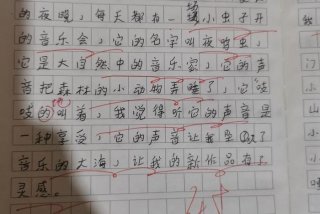 的夜晚，每天都有一些小虫子开
的音乐会，它的名字叫夜鸣虫，
它是大自然中的音乐家，它的声
音把森林的小动物弄睡了，它吱
吱的叫着，我觉得听它的声音是
一种享受，它的声音让我坠入了
音乐的大海，让我的新作品有了
灵感。